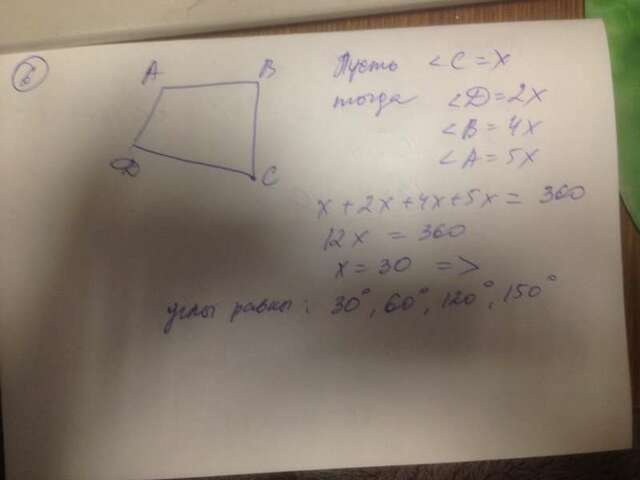 6
A B
D C
Пусть ∠C = x
тогда ∠D = 2x
∠B = 4x
∠A = 5x
x + 2x + 4x + 5x = 360
12x = 360
x = 30 =>
углы равны: 30°, 60°, 120°, 150°